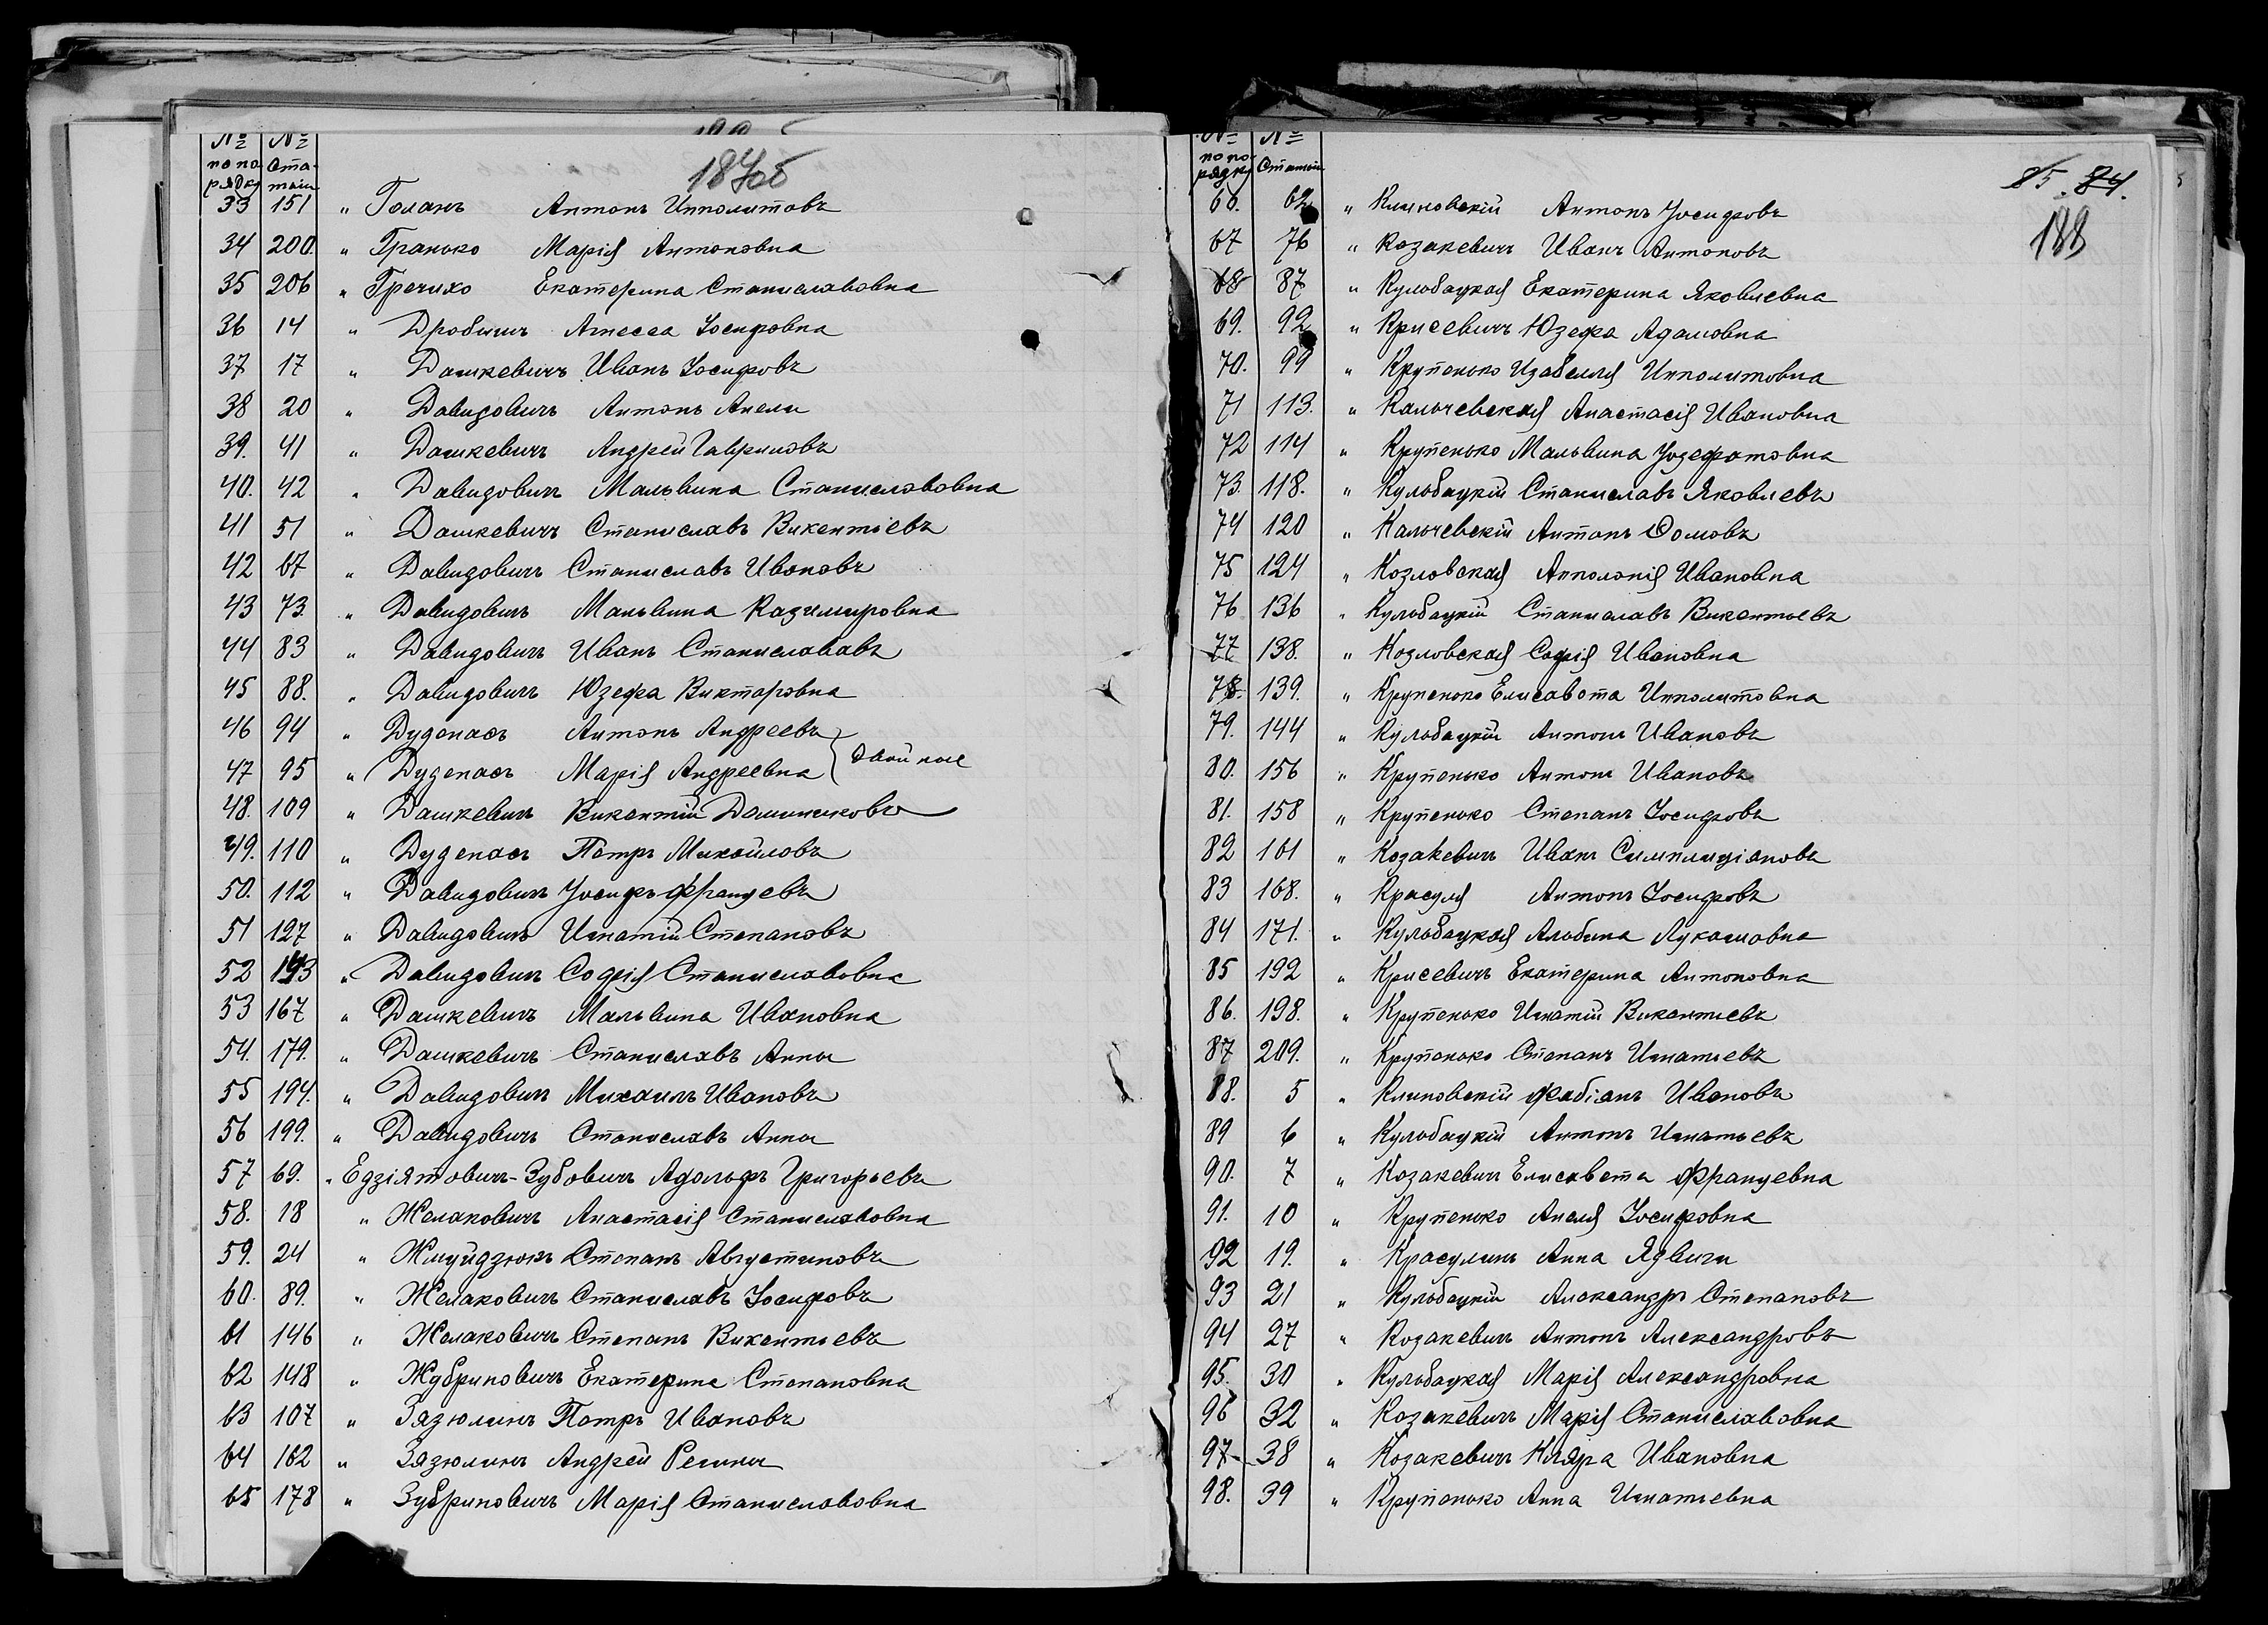 № по порядку № Статьи
187об
33 151 " Голанъ Антонъ Ипполитовъ
34 200. " Гранько Марія Антоновна
35 206 " Гречихо Екатерина Станиславовна
36 14 " Дробишъ Агнеса Іосифовна
37 17 " Дашкевичъ Иванъ Іосифовъ
38 20 " Давидовичъ Антонъ Анели
39. 41 " Дашкевичъ Андрей Гавриловъ
40. 42 " Давидовичъ Мальвина Станиславовна
41 51 " Дашкевичъ Станиславъ Викентіевъ
42 67 " Давидовичъ Станиславъ Ивановъ
43 73. " Давидовичъ Мальвина Казимировна
44 83 " Давидовичъ Иванъ Станиславовъ
45 88. " Давидовичъ Юзефа Викторовна
46 94 " Дуденасъ Антонъ Андреевъ
47 95 " Дуденасъ Марія Андреевна } двойные
48. 109 " Дашкевичъ Викентій Доминиковъ
49. 110 " Дуденасъ Петръ Михайловъ
50. 112 " Давидовичъ Іосифъ Францевъ
51 127 " Давидовичъ Игнатій Степановъ
52 143 " Давидовичъ Софія Станиславовна
53 167 " Дашкевичъ Мальвина Ивановна
54. 179. " Дашкевичъ Станиславъ Анны
55 194. " Давидовичъ Михаилъ Ивановъ
56 199. " Давидовичъ Станиславъ Анны
57 69. " Едзіятовичъ-Зубовичъ Адольфъ Григорьевъ
58. 18 " Желаковичъ Анастасія Станиславовна
59. 24 " Жмуйдзюкъ Степанъ Августиновъ
60. 89. " Желаковичъ Станиславъ Іосифовъ
61 146 " Желаковичъ Степанъ Викентьевъ
62 148 " Жубриновичъ Екатерина Степановна
63 107 " Зязюлинъ Петръ Ивановъ
64 162 " Зязюлинъ Андрей Регины
65 178 " Зубриновичъ Марія Станиславовна
№ по порядку № Статьи
85. 84.
188
66. 62 " Климовскій Антонъ Іосифовъ
67 76 " Козакевичъ Иванъ Антоновъ
68 87 " Кульбацкая Екатерина Яковлевна
69. 92 " Крисевичъ Юзефа Адамовна
70. 99 " Крупенько Изабелля Ипполитовна
71 113. " Кальчевская Анастасія Ивановна
72 114 " Крупенько Мальвина Іозефатовна
73. 118. " Кульбацкій Станиславъ Яковлевъ
74 120 " Кальчевскій Антонъ Ѳомовъ
75 124 " Козловская Апполонія Ивановна
76 136 " Кульбацкій Станиславъ Викентьевъ
77 138. " Козловская Софія Ивановна
78. 139. " Крупенько Елисавета Ипполитовна
79. 144 " Кульбацкій Антонъ Ивановъ
80. 156 " Крупенько Антонъ Ивановъ
81. 158 " Крупенько Степанъ Іосифовъ
82 161 " Козакевичъ Иванъ Симплиціановъ
83 168. " Красуля Антонъ Іосифовъ
84 171. " Кульбацкая Альбина Лукашовна
85 192 " Крисевичъ Екатерина Антоновна
86. 198. " Крупенько Игнатій Викентиевъ
87 209. " Крупенько Степанъ Игнатиевъ
88. 5 " Климовскій Фабіанъ Ивановъ
89 6 " Кульбацкій Антонъ Игнатьевъ
90. 7 " Козакевичъ Елисавета Францевна
91. 10 " Крупенько Анеля Іосифовна
92 19. " Красулинъ Анна Ядвиги
93 21 " Кульбацкій Александръ Степановъ
94 27 " Козакевичъ Антонъ Александровъ
95. 30 " Кульбацкая Марія Александровна
96 32 " Козакевичъ Марія Станиславовна
97 38 " Козакевичъ Кляра Ивановна
98. 39 " Крупенько Анна Игнатьевна